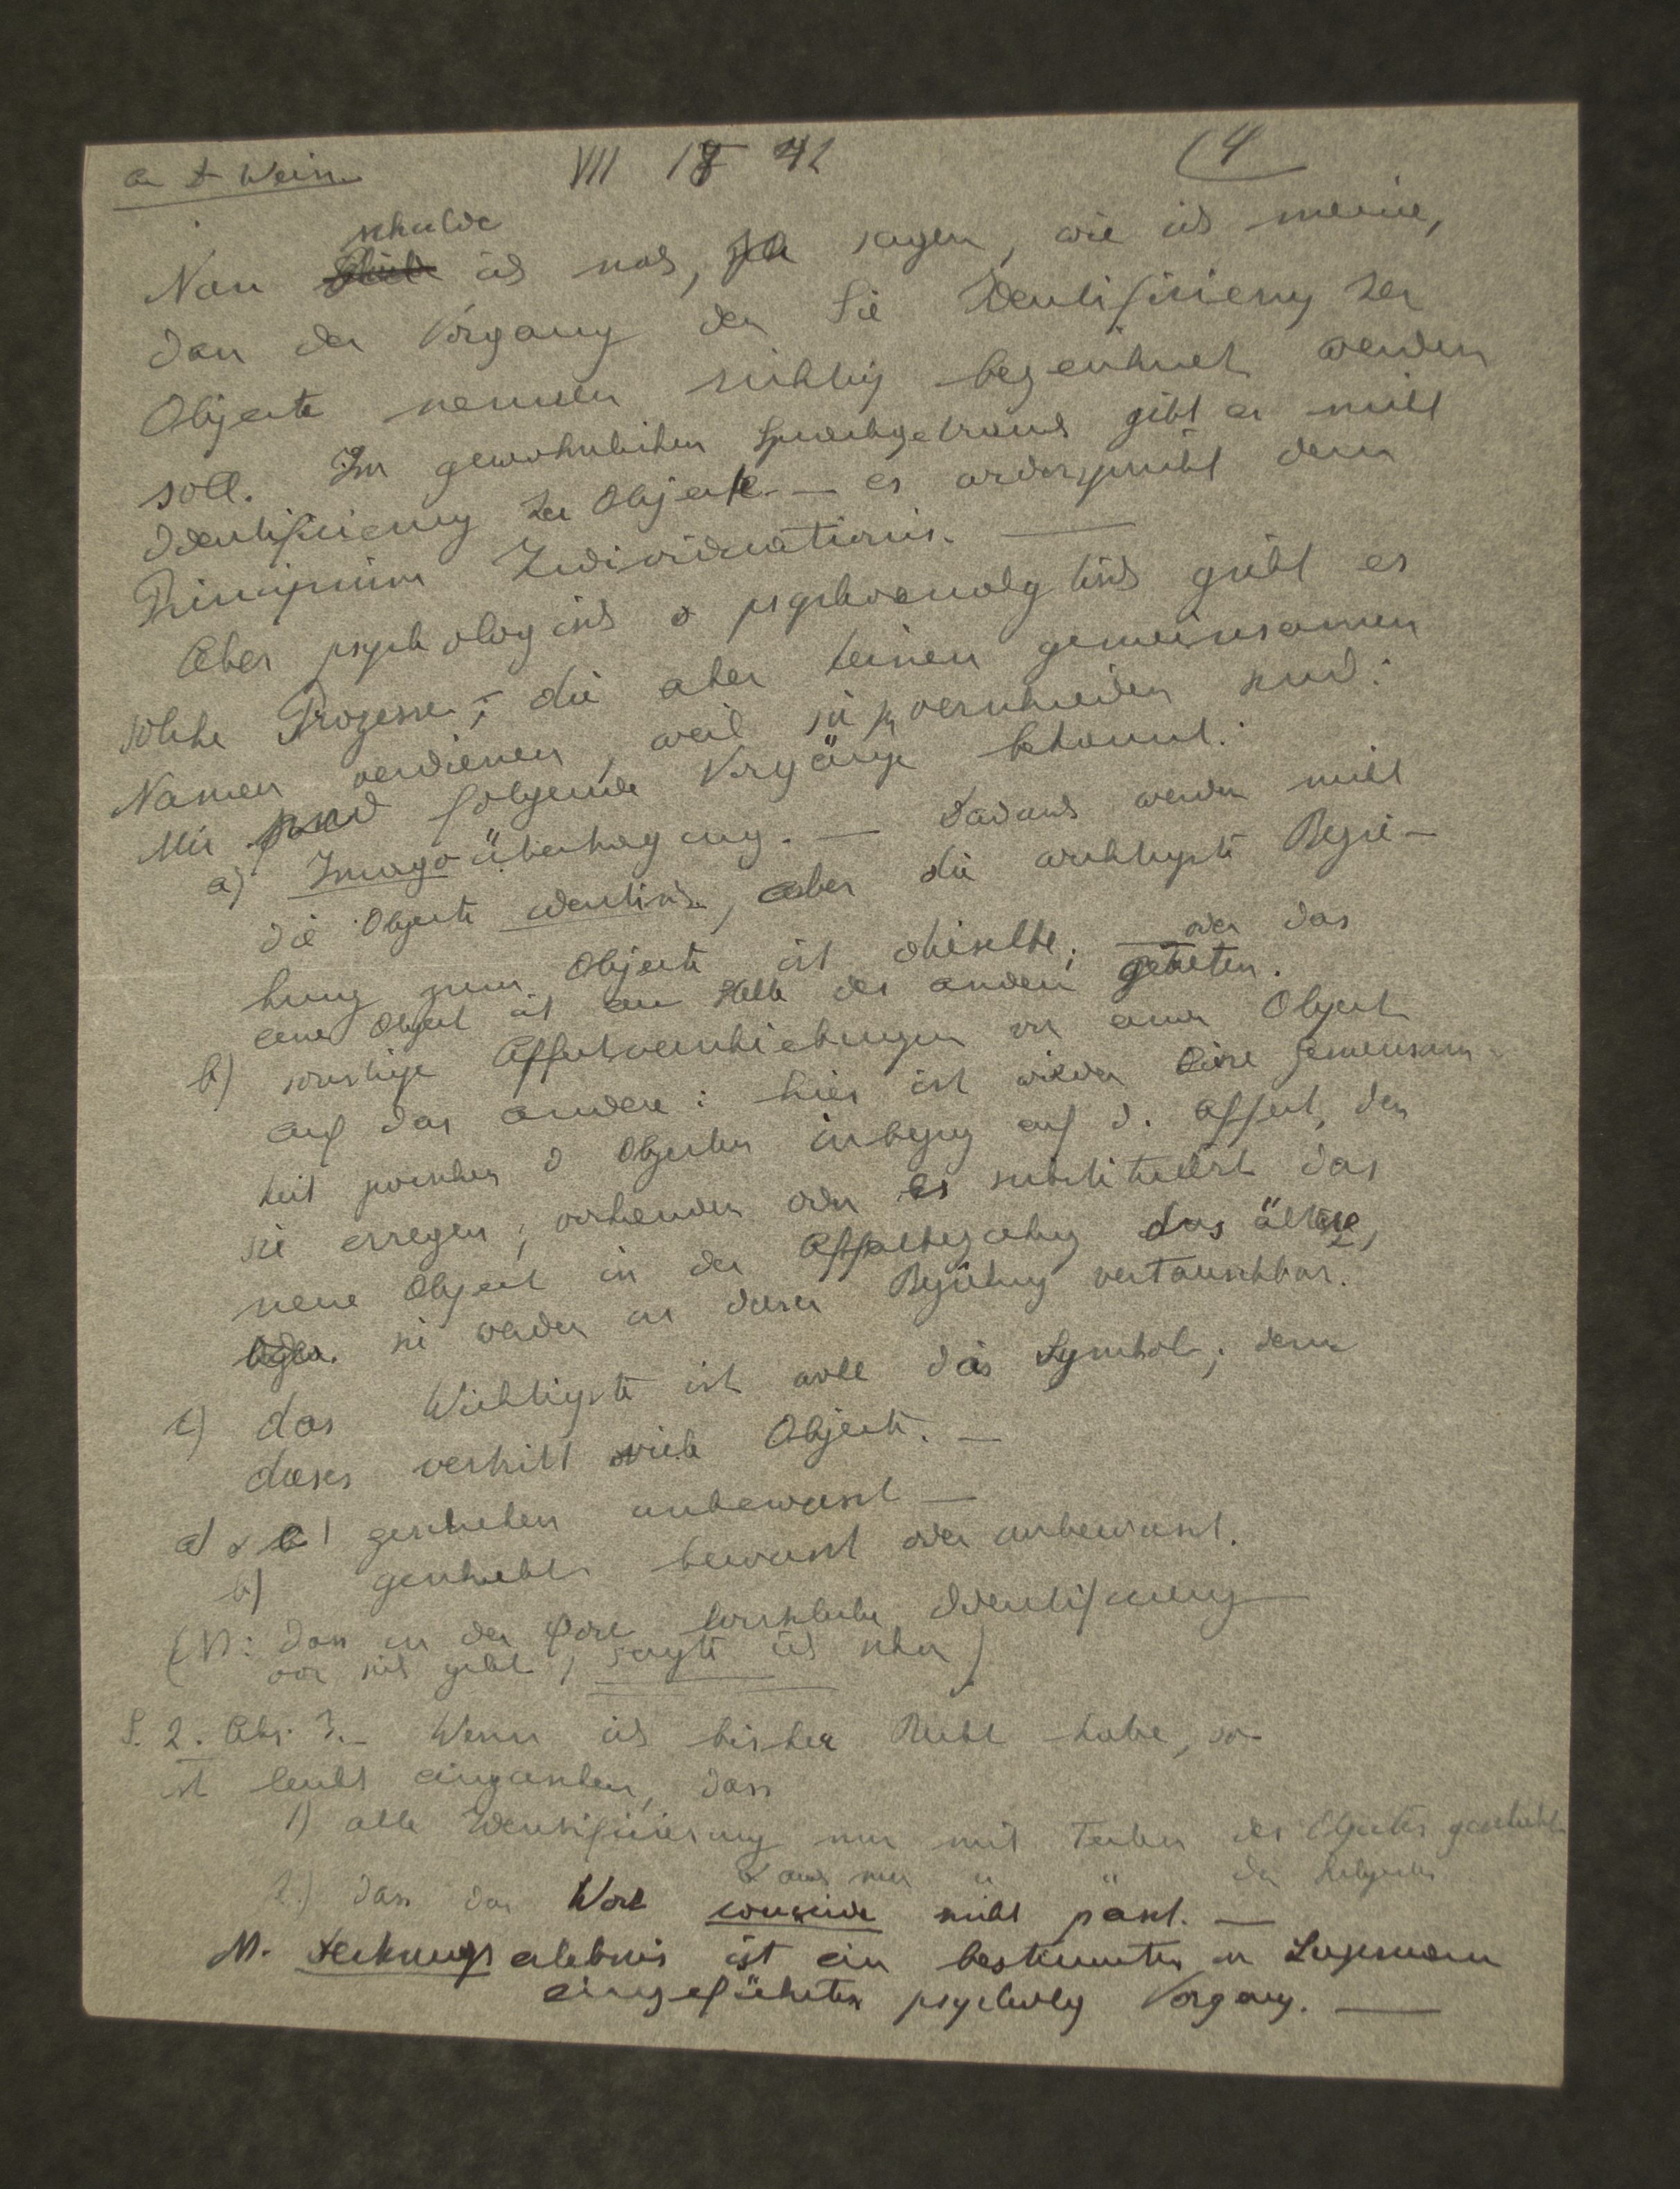 VII 18 42 (4
Nun schulde ich noch, zu sagen, wie ich meine,
dass der Vorgang den Sie Identifizierung der
Objecte nennen richtig bezeichnet werden
soll. Im gewöhnlichen Sprachgebrauch gibt es nicht
Identifizierung der Objekte — es widerspricht dem
Principium Individuationis. —
Aber psychologisch & psychoanalytisch gibt es
solche Prozesse; die aber keinen gemeinsamen
Namen verdienen, weil sie zu verschieden sind:
Mir sind folgende Vorgänge bekannt:
a) Imagoübertragung. — Dadurch werden nicht
die Objecte identisch, aber die wichtigste Bezie-
hung zum Objecte ist dieselbe; — oder das
eine Object ist an Stelle des anderen getreten.
b) sonstige Affectverschiebungen von einem Object
auf das andere: hier ist wieder eine Gemeinsam-
keit zwischen d Objecten inbezug auf d. Affect, den
sie erregen, vorhanden oder es substituiert das
neue Object in der Affectbeziehung das ältere,
sie werden in dieser Beziehung vertauschbar.
c) das Wichtigste ist wohl das Symbol; denn
dieses vertritt viele Objecte. —
a) & c) geschehen unbewusst —
b) geschieht bewusst oder unbewusst.
(N: dass in der
vor sich geht, sagte ich schon)
S. 2. Abs. 3. — Wenn ich bisher Recht habe, so
ist leicht einzusehen, dass
1) alle Identifizierung nur mit Teilen des Objectes geschieht
& auch nur " " des Subjectes
2.) dass das Wort nicht passt. —
N. Deckungserlebnis ist ein bestimmter
eingeführter psycholog Vorgang. —